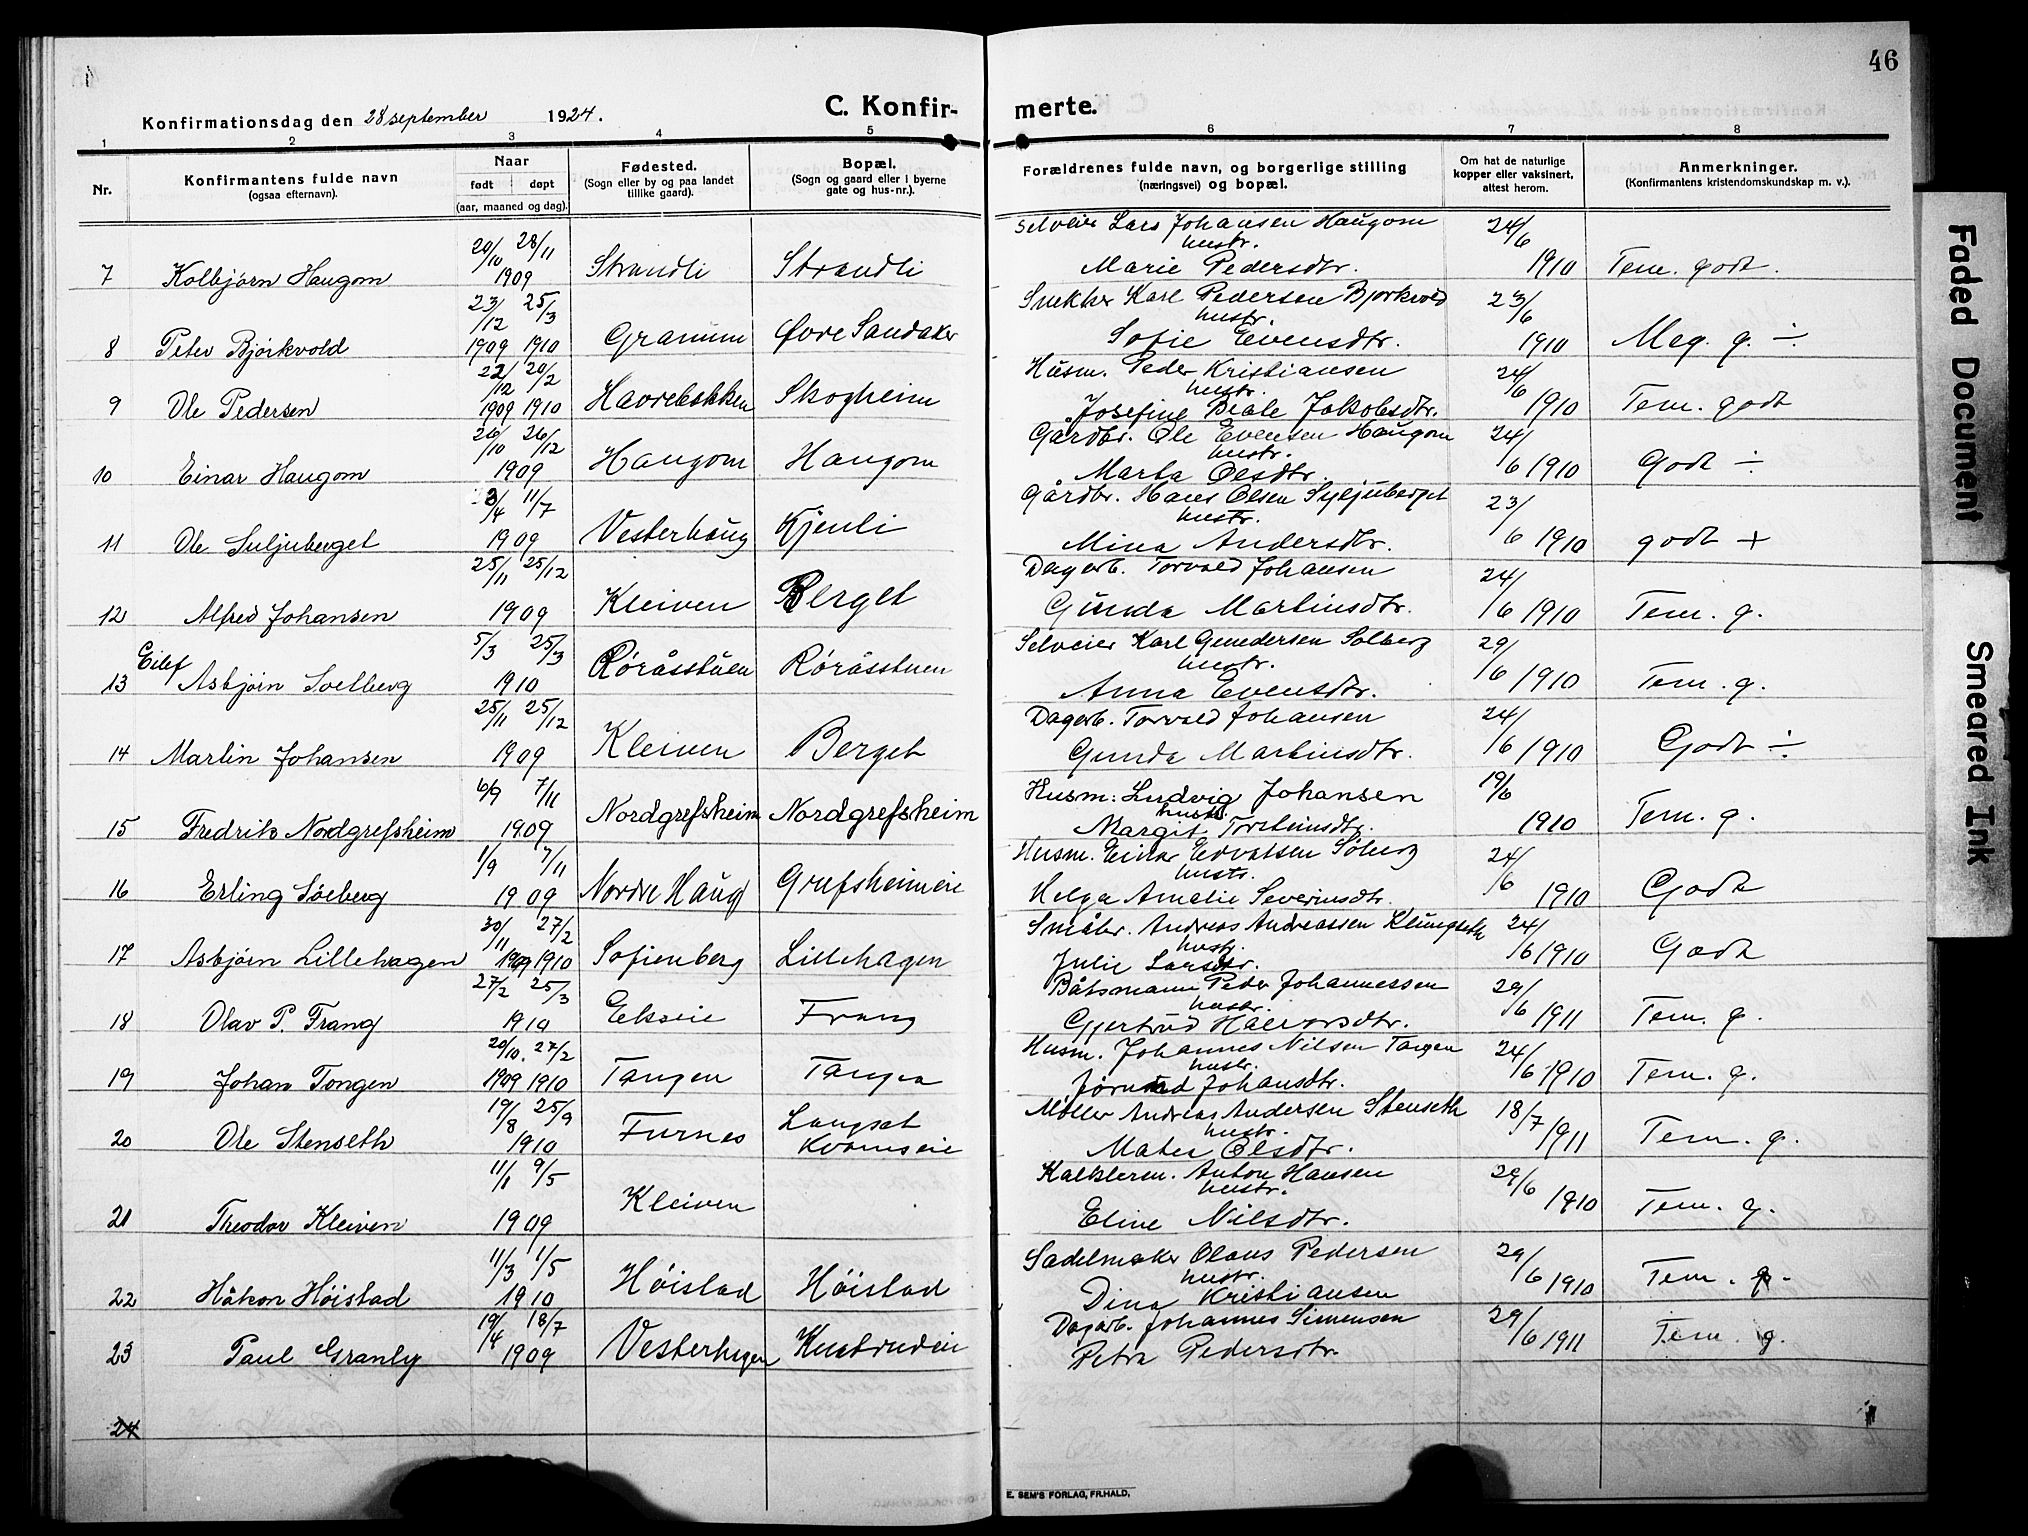 46
Konfirmationsdag den 28 september 1924.
C. Konfir-
merte.
1 2 3 4 5 6 7 8
Nr.
Konfirmantens fulde navn
(ogsaa efternavn).
Naar
født døpt
(aar, maaned og dag).
Fødested.
(Sogn eller by og paa landet
tillike gaard).
Bopæl.
(Sogn og gaard eller i byerne
gate og hus-nr.).
Forældrenes fulde navn, og borgerlige stilling
(næringsvei) og bopæl.
Om hat de naturlige
kopper eller vaksinert,
attest herom.
Anmerkninger.
(Konfirmantens kristendomskundskap m. v.).
20/10 28/11 Selveier Lars Johansen Haugom 24/6
hustr.
7 Kolbjørn Haugom 1909 Strandli Strandli Marie Pedersdtr. 1910 Tem. godt.
23/12 25/3 Snekker Karl Pedersen Bjørkvold 23/6
hustr.
8 Peter Bjørkvold 1909 1910 Granum Øvre Sandaker Sofie Evensdtr. 1910 Meg. g. ÷
22/12 20/2 Husm. Peder Kristiansen 24/6
hustr.
9 Ole Pedersen 1909 1910 Havrebakken Skogheim Josefine Beate Jakobsdtr. 1910 Tem. godt
26/10 26/12 Gårdbr. Ole Evensen Haugom 24/
hustr.
10 Einar Haugom 1909 Haugom Haugom Marta Olsdtr. 6 1910 Godt ÷
3/4 11/7 Gårdbr. Hans Olsen Syljuberget 23/
hustr.
11 Ole Suljuberget 1909 Vesterhaug Kjenli Mina Andersdtr. 6 1910 godt +
25/11 25/12 Dagarb. Torvald Johansen 24/
12 Alfred Johansen 1909 Kleiven Berget Gunda Martinsdtr. 6 1910 Tem. g.
Eilef 5/3 25/3 Selveier Karl Gundersen Solberg 29/
hustr.
13 Asbjørn Solberg 1910 Røråsstuen Røråsstuen Anna Evensdtr. 6 1910 Tem. g.
25/11 25/12 Dagarb. Torvald Johansen 24/
14 Martin Johansen 1909 Kleiven Berget Gunda Martinsdtr. 6 1910 Godt ÷
6/9 7/11 Husm: Ludvig Johansen 19/6
hustr.
15 Fredrik Nordgrefsheim 1909 Nordgrefsheim Nordgrefsheim Margit Torsteinsdtr. 1910 Tem. g.
1/9 7/11 Husm. Einar Edvartsen Søberg 24/6
hustr.
16 Erling Søeberg 1909 Nordre Haug Grefsheimeie Helga Amalie Severinsdtr. 1910 Godt
30/11 27/2 Småbr. Andreas Andreassen Klungseth 24/
hustr.
17 Asbjørn Lillehagen 1909 1910 Sofienberg Lillehagen Julie Larsdtr. 6 1910 Godt
27/2 25/3 Båtsmann Peder Johannessen 29/
hustr.
18 Olav P. Frang 1910 Ekseie Frang Gjertrud Halvorsdtr. 6 1911 Tem. g.
20/10. 27/2 Husm. Johannes Nilsen Tangen 24/
hustr.
19 Johan Tongen 1909 1910 Tangen Tangen Jørund Johansdtr. 6 1910 Tem. g.
19/8 25/9 Møller Andreas Andersen Stenseth 18/7
hustr.
20 Ole Stenseth 1910 Furnes Langset Kvamseie Matea Olsdtr. 1911 Tem. g.
11/1 9/5 Kalkbren. Anton Hansen 29/6
hustr.
21 Theodor Kleiven 1909 Kleiven Eline Nilsdtr. 1910 Tem. g.
11/3 1/5 Sadelmaker Olaus Pedersen 29/
hustr.
22 Håkon Høistad 1910 Høistad Høistad Dina Kristiansen 6 1910 Tem. g.
19/4 18/7 Dagarb. Johannes Simensen 29/
23 Paul Granly 1909 Vesterhagen Petra Pedersdtr. 6 1911 Tem. g.
24
E. SEM'S FORLAG, FR.HALD.
Faded Document
Smeared Ink